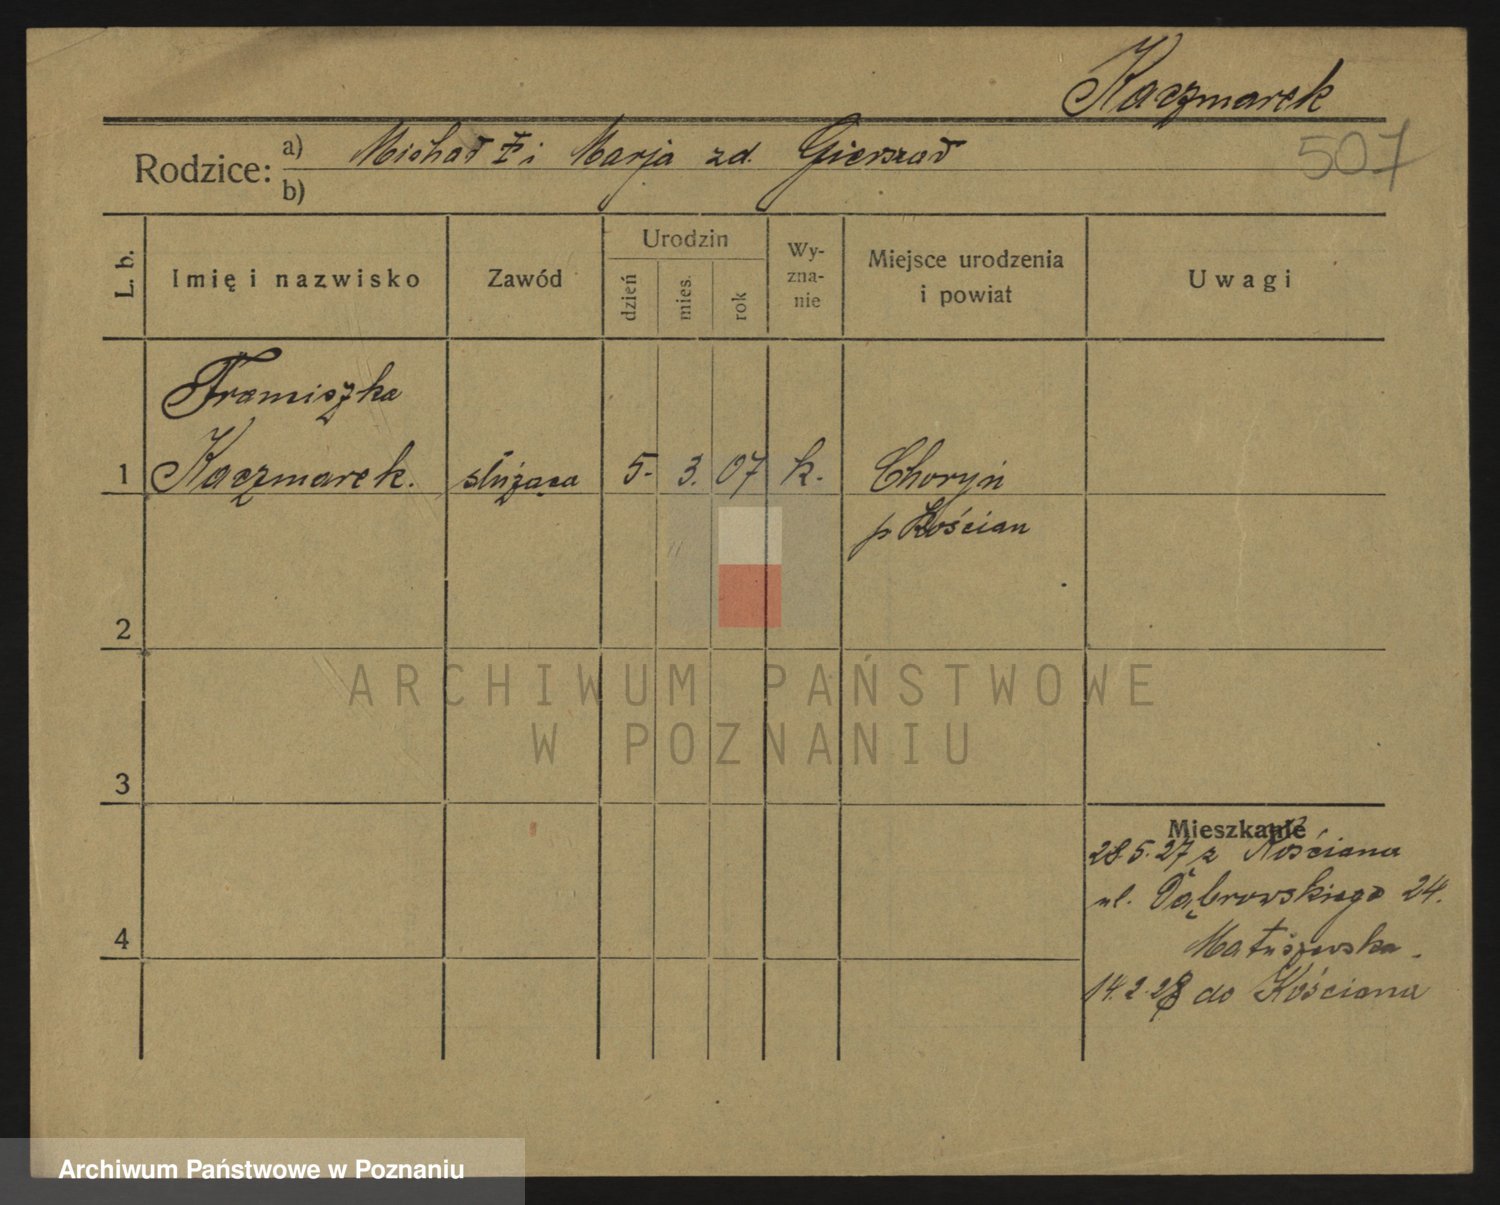 Kaczmarek
507
Rodzice: a) Michał † i Marja zd. Gierszał
b)
L. b.
Imię i nazwisko
Zawód
Urodzin
dzień
mies.
rok
Wy-
zna-
nie
Miejsce urodzenia
i powiat
Uwagi
Franciszka
1 Kaczmarek. służąca 5. 3. 07 k. Choryń
p Kościan
2
ARCHIWUM PAŃSTWOWE
W POZNANIU
3
Mieszkanie
28.5.27 z Kościana
ul. Dąbrowskiego 24.
4 Matuszewska.
14.2.28 do Kościana
Archiwum Państwowe w Poznaniu